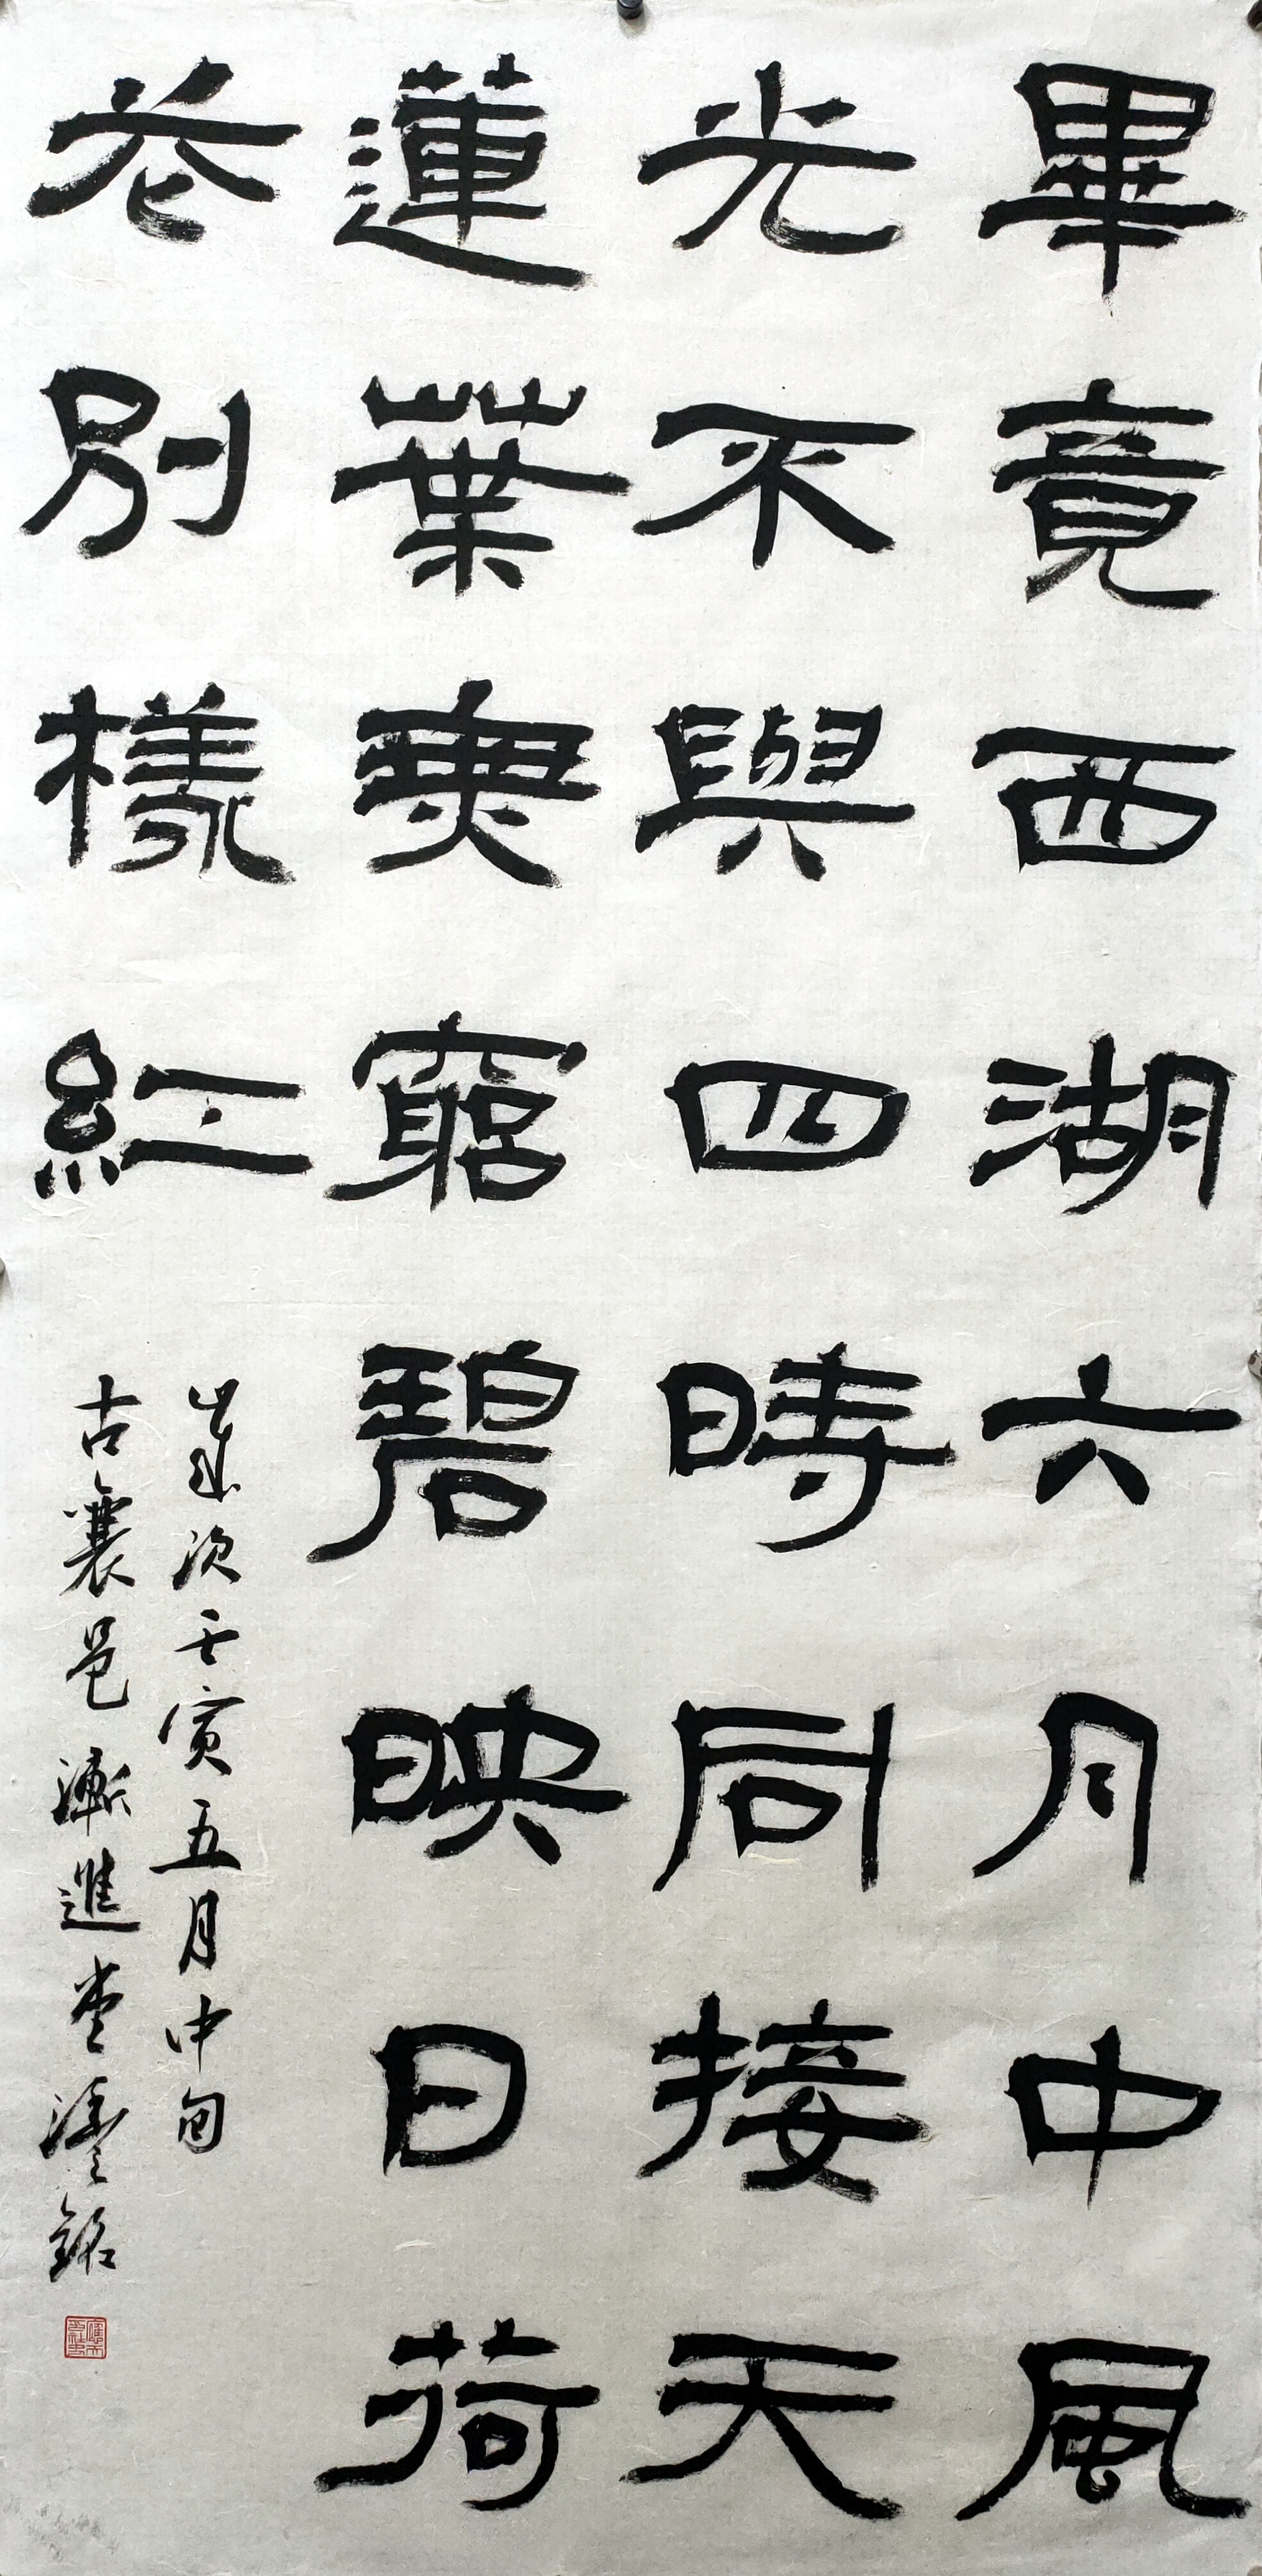 畢竟西湖六月中風
光不與四時同接天
蓮葉無窮碧映日荷
花別樣紅
歲次壬寅五月中旬
古襄邑漸進堂
銘